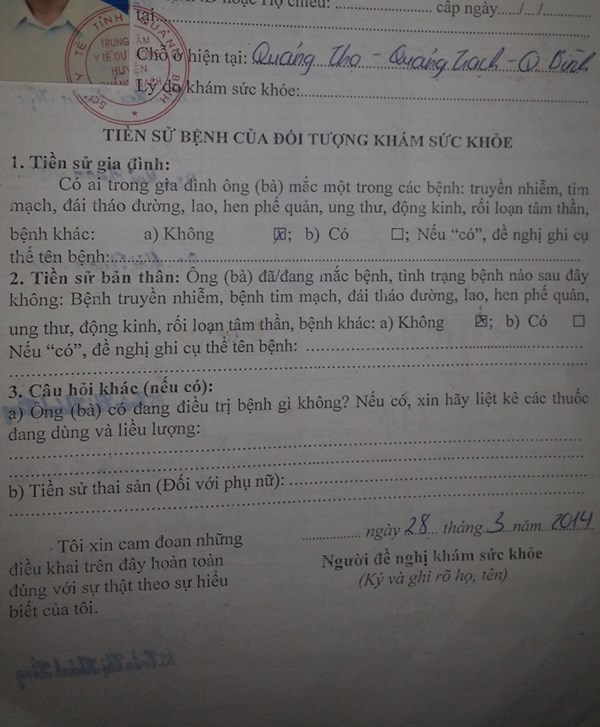 hoặc Hộ chiếu:........................ cấp ngày...../..../........
tại:........................
Chỗ ở hiện tại: Quảng Thọ - Quảng Trạch - Q Bình
Lý do khám sức khỏe:........................
TRUNG TÂM
Y TẾ DỰ
HUYỆN
TIỀN SỬ BỆNH CỦA ĐỐI TƯỢNG KHÁM SỨC KHỎE
1. Tiền sử gia đình:
Có ai trong gia đình ông (bà) mắc một trong các bệnh: truyền nhiễm, tim
mạch, đái tháo đường, lao, hen phế quản, ung thư, động kinh, rối loạn tâm thần,
bệnh khác: a) Không ☒; b) Có ☐; Nếu “có”, đề nghị ghi cụ
thể tên bệnh:........................
2. Tiền sử bản thân: Ông (bà) đã/đang mắc bệnh, tình trạng bệnh nào sau đây
không: Bệnh truyền nhiễm, bệnh tim mạch, đái tháo đường, lao, hen phế quản,
ung thư, động kinh, rối loạn tâm thần, bệnh khác: a) Không ☒; b) Có ☐
Nếu “có”, đề nghị ghi cụ thể tên bệnh: ........................
3. Câu hỏi khác (nếu có):
a) Ông (bà) có đang điều trị bệnh gì không? Nếu có, xin hãy liệt kê các thuốc
đang dùng và liều lượng:
b) Tiền sử thai sản (Đối với phụ nữ): ........................
............. ngày 28 tháng 3 năm 2014
Tôi xin cam đoan những
điều khai trên đây hoàn toàn
đúng với sự thật theo sự hiểu
biết của tôi.
Người đề nghị khám sức khỏe
(Ký và ghi rõ họ, tên)